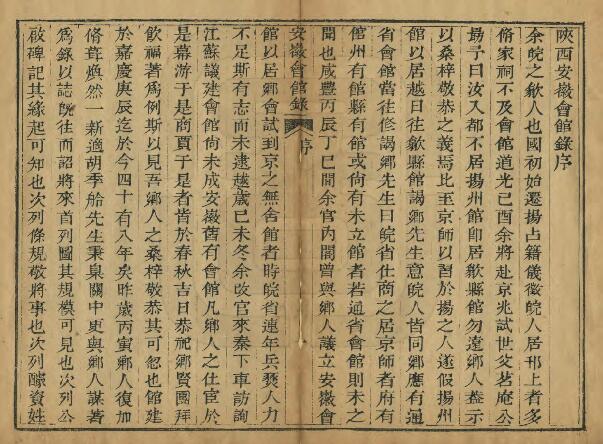 陝西安徽會館錄序
余皖之歙人也國初始遷揚占籍儀徵皖人居邗上者多
脩家祠不及會館道光己酉余將赴京兆試世父茗庵公
揚予曰汝入都不居揚州館卽居歙縣館勿違鄉人蓋示
以桑梓敬恭之義焉比至京師以習於揚之人遂假揚州
館以居越日往歙縣館謁鄉先生意皖人皆同鄉應有通
省會館當往修謁鄉先生曰皖省仕商之居京師者府有
館州有館縣有館或尙有未立館者若通省會館則未之
聞也咸豐丙辰丁巳閒余官內閣曾與鄉人議立安徽會
安徽會館錄 序
館以居鄉會試到京之無舍館者時皖省連年兵燹人力
不足斯有志而未逮越歲己未冬余改官來秦下車訪詢
江蘇議建會館尙未成安徽舊有會館凡鄉人之仕宦於
是幕游于是商賈于是者皆於春秋吉日恭祀鄉賢團拜
飲福著爲例斯以見吾鄉人之桑梓敬恭其可忽也館建
於嘉慶庚辰迄於今四十有八年矣昨歲丙寅鄉人復加
脩葺煥然一新適胡季船先生秉臬關中更與鄉人謀著
爲錄以誌旣往而詔將來首列圖其規模可見也次列公
啟碑記其緣起可知也次列條規敬將事也次列醵資姓